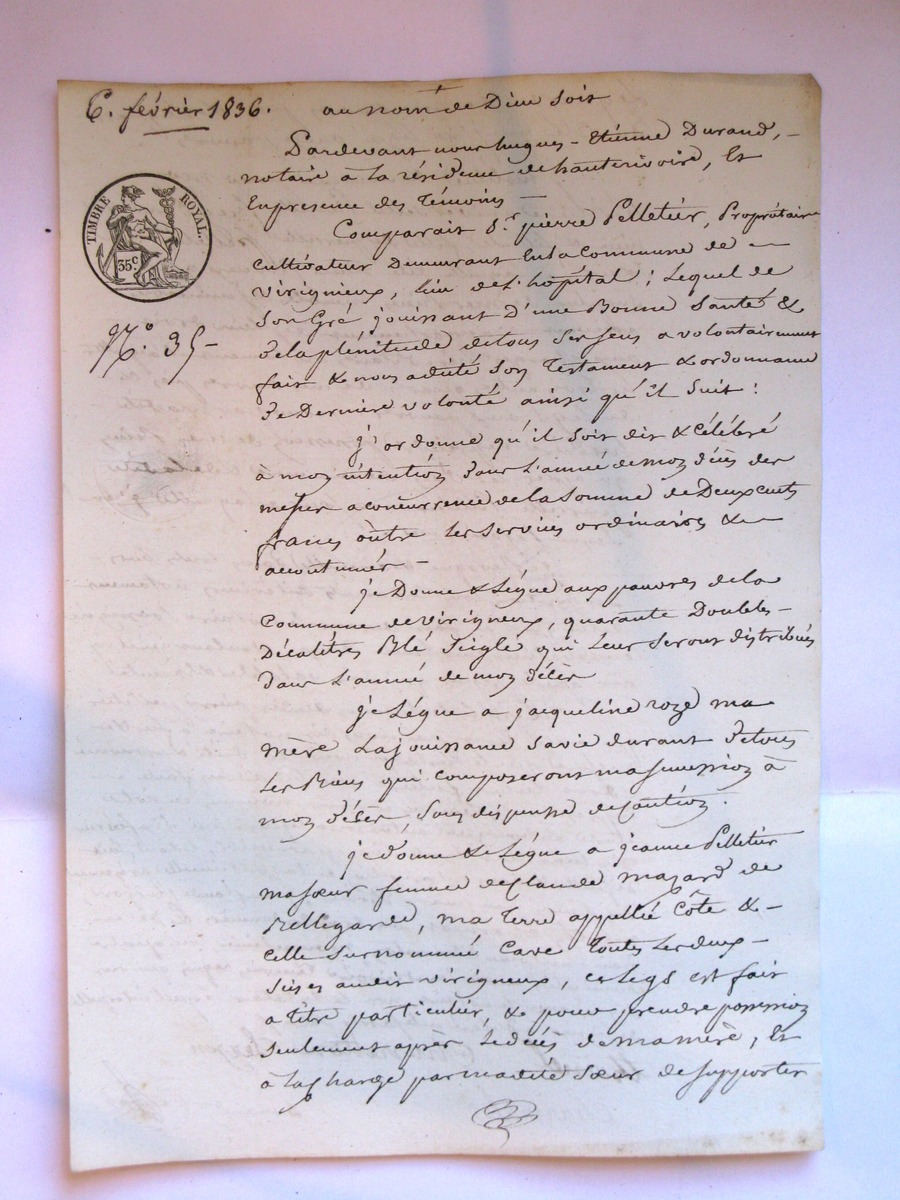 6. février 1836.
au nom de Dieu soit
TIMBRE ROYAL.
35 c.
N.º 35
Pardevant nous hugues - Etiénne Durand, -
notaire à la résidence de hauterivoire, Et
En présence des Témoins —
Comparait Sr. pierre Pelletiér, Propriétaire
cultivateur Demeurant En la Commune de -
Virigneux, lieu de l'hôpital ; Lequel de
Son Gré jouissant D'une Bonne Santé &
De la plénitude de tous ses sens a volontairement
fait & nous a dicté Son Testament & ordonnance
De Derniere volonté ainsi qu'il suit :
j'ordonne qu'il soit dit & célébré
à mon intention Dans L'année de mon décès des
messes a concurrence de la Somme de Deux cents
francs outre les Services ordinaires & -
accoutumés -
je Donne & Lègue aux pauvres de la
Commune de virigneux, quarante Doubles -
Décalitres Blé Seigle qui Leur Seront distribués
Dans L'année de mon Décès
je Lègue a jacqueline roze ma
mère La jouissance sa vie durant De tous
Les Biens qui composeront ma succession à
mon Décès, Sous dispense de caution.
je Donne & Lègue a jeanne Pelletier
ma sœur femme de Claude mazard de
Bellegarde, ma Terre appellée Côte & -
celle Surnommé Cave Toutes Les deux -
Sises audit virigneux, ce legs est fait
a titre particulier, & pour prendre possession
Seulement après Le décès de ma mère, Et
à la charge par madite Sœur de Supporter